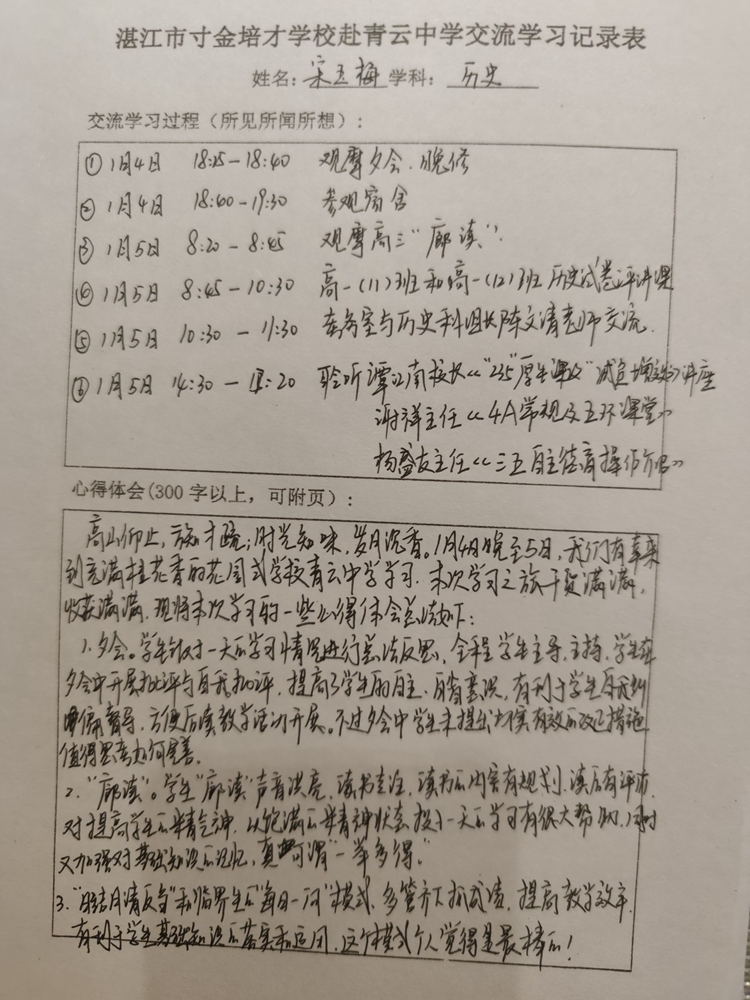 湛江市寸金培才学校赴青云中学交流学习记录表
姓名：宋玉梅 学科：历史
交流学习过程（所见所闻所想）：
① 1月4日 18:25—18:40 观摩夕会、晚修
② 1月4日 18:40—19:30 参观宿舍
③ 1月5日 8:20—8:45 观摩高三“廊读”.
④ 1月5日 8:45—10:30 高一(11)班和高一(12)班历史试卷评讲课
⑤ 1月5日 10:30—11:30 在办室与历史科组长陈文清老师交流.
⑥ 1月5日 14:30— :20 聆听谭江南校长《“235”厚生课改“减负增效》讲座
谢祥主任《4A常规及五环课堂》
杨盛友主任《三五自主德育操作 》
心得体会(300字以上，可附页)：
高山仰止, 才疏；时光知味, 岁月沉香。1月4日晚至5日, 我们有幸来
到充满桂花香的花园式学校青云中学学习. 本次学习之旅干货满满,
收获满满. 现将本次学习的一些心得体会总结如下：
1. 夕会。学生针对一天的学习情况进行总结反思, 全程学生主导、主持, 学生在
夕会中开展批评与自我批评, 提高了学生的自主、自省意识, 有利于学生自我
督导, 方便后续教学活动开展。不过夕会中学生未提出切实有效的改正措施,
值得思考如何完善.
2. “廊读”。学生“廊读”声音洪亮, 读书专注, 读书的内容有规划, 读后有评价.
对提高学生的精气神, 以饱满的精神状态投入一天的学习有很大帮助, 同时
又加强对基础知识的记忆, 真可谓“一举多得.”
3. “日结月清反当”和临界生的“每日一问”模式, 多管齐下抓成绩, 提高教学效率.
有利于学生基础知识的落实和运用, 这个模式个人觉得是最棒的！